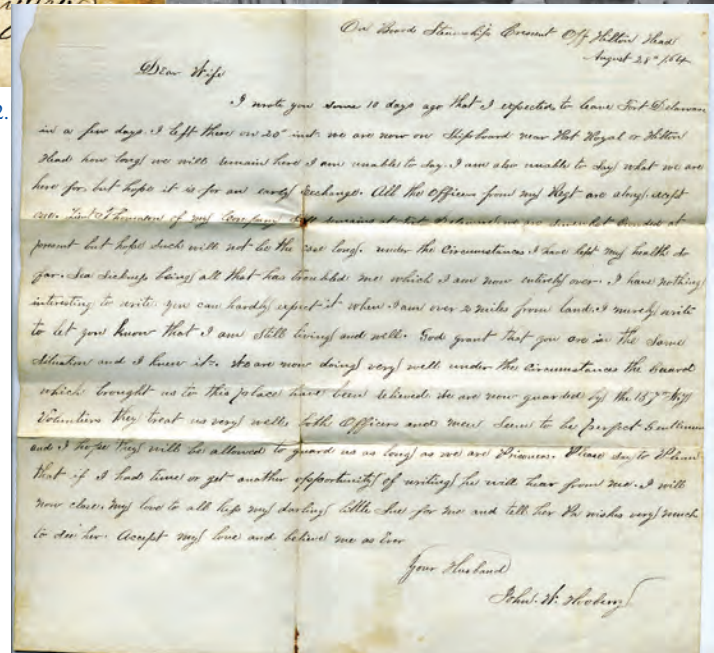 2.
On Board Steamship Crescent Off Hilton Head
August 28th 1864
Dear Wife
I wrote you some 10 days ago that I expected to leave Fort Delaware
in a few days. I left there on 20th inst. we are now on Shipboard near Port Royal or Hilton
Head how long we will remain here I am unable to say. I am also unable to say what we are
here for. but hope it is for an early exchange. All the Officers from my Regt are along. except
one. Lieut Thomason of my Company remains at Fort Delaware we are somewhat crowded at
present but hope such will not be the case long. under the circumstances I have kept my health so
far. Sea Sickness being all that has troubled me which I am now entirely over. I have nothing
interesting to write you can hardly expect it when I am over 2 miles from land. I merely write
to let you know that I am still living and well. God grant that you are in the same
situation and I knew it. We are now doing very well under the circumstances the Guard
which brought us to this place have been relieved we are now guarded by the 157th
Volunteers they treat us very well. both Officers and men seem to be perfect Gentlemen
and I hope they will be allowed to guard us as long as we are Prisoners. Please say to
that if I had time or get another opportunity of writing he will hear from me. I will
now close. My love to all kiss my darling little Sue for me and tell her Pa wishes very much
to see her. Accept my love and believe me as Ever
Your Husband
John. W.